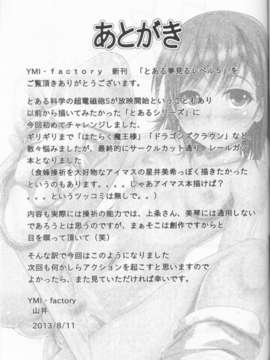 あとがき
YMI-factory 新刊 「とある夢見るレベル5」を
ご覧頂きありがとうございます。
とある科学の超電磁砲Sが放映開始ということもあり
以前から描いてみたかった「とあるシリーズ」に
今回初めてチャレンジしました。
ギリギリまで「はたらく魔王様」「ドラゴンズクラウン」など
数々悩みましたが、最終的にサークルカット通りレールガン
本となりました
(食蜂操祈を大好物なアイマスの星井美希っぽく描きたかった
というのもあります。。。。じゃあアイマス本描けば?
。。。というツッコミは無しで。。)
内容も実際には操祈の能力では、上条さん、美琴には通用しない
であろうとは思うのですが、まぁそこは創作ですからと
目を瞑って頂いて(笑)
そんな訳で今回はこのようになりました
次回も何かしらアクションを起こすと思いますので
よかったら、また見ていただければ幸いです。
YMI-factory
山井
2013/8/11